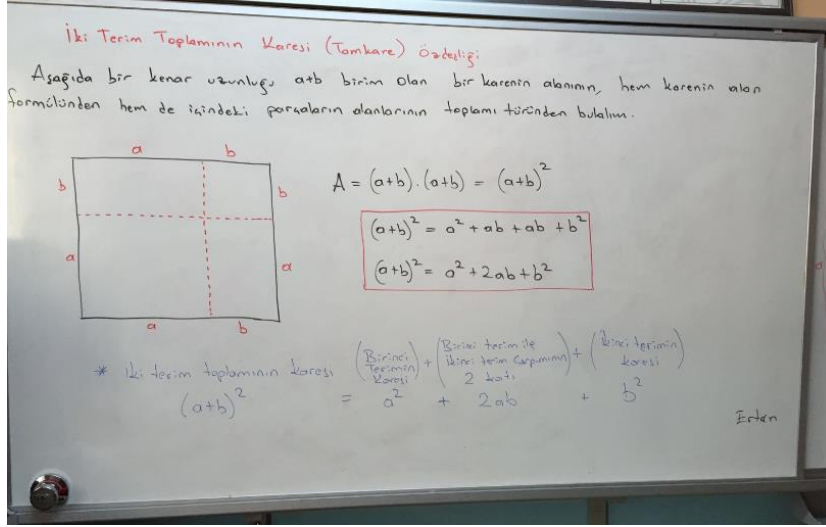 İki Terim Toplamının Karesi (Tamkare) Özdeşliği
Aşağıda bir kenar uzunluğu a+b birim olan bir karenin alanının, hem karenin alan
formülünden hem de içindeki parçaların alanlarının toplamı türünden bulalım.
a b
b b
a a
a b
A = (a+b).(a+b) = (a+b)²
(a+b)² = a² + ab + ab + b²
(a+b)² = a² + 2ab + b²
* iki terim toplamının karesi (Birinci Terimin Karesi) + (Birinci terim ile ikinci terim çarpımının 2 katı) + (ikinci terimin karesi)
(a+b)² = a² + 2ab + b²
Ertan